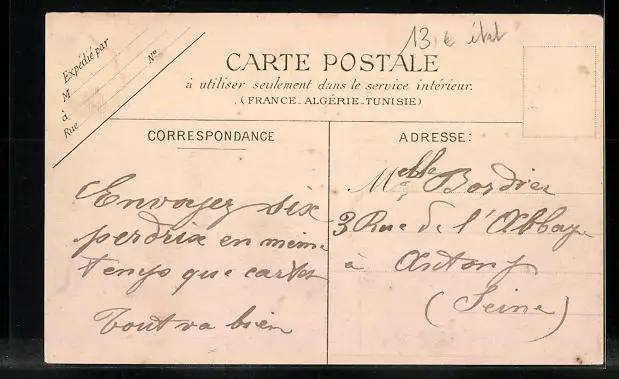 13 € état
Expédié par
M
à
Rue
N°
CARTE POSTALE
à utiliser seulement dans le service intérieur.
(FRANCE-ALGÉRIE-TUNISIE)
CORRESPONDANCE
ADRESSE:
Envoyez six
perdrix en même
temps que cartes
Tout va bien
Melle Bordier
3 Rue de l'Abbaye
à Antony
(Seine)